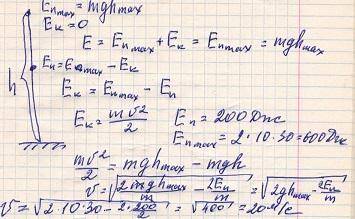 Eп max = mghmax
Eк = 0
E = Eп max + Eк = Eп max = mghmax
h
Eп = Eп max − Eк
Eк = Eп max − Eп
Eк = mv²/2
Eп = 200 Дж
Eп max = 2·10·30 = 600 Дж
mv²/2 = mghmax − mgh
v = √(2mghmax/m − 2Eп/m) = √(2ghmax − 2Eп/m)
v = √(2·10·30 − 2·200/2) = √400 = 20 м/с